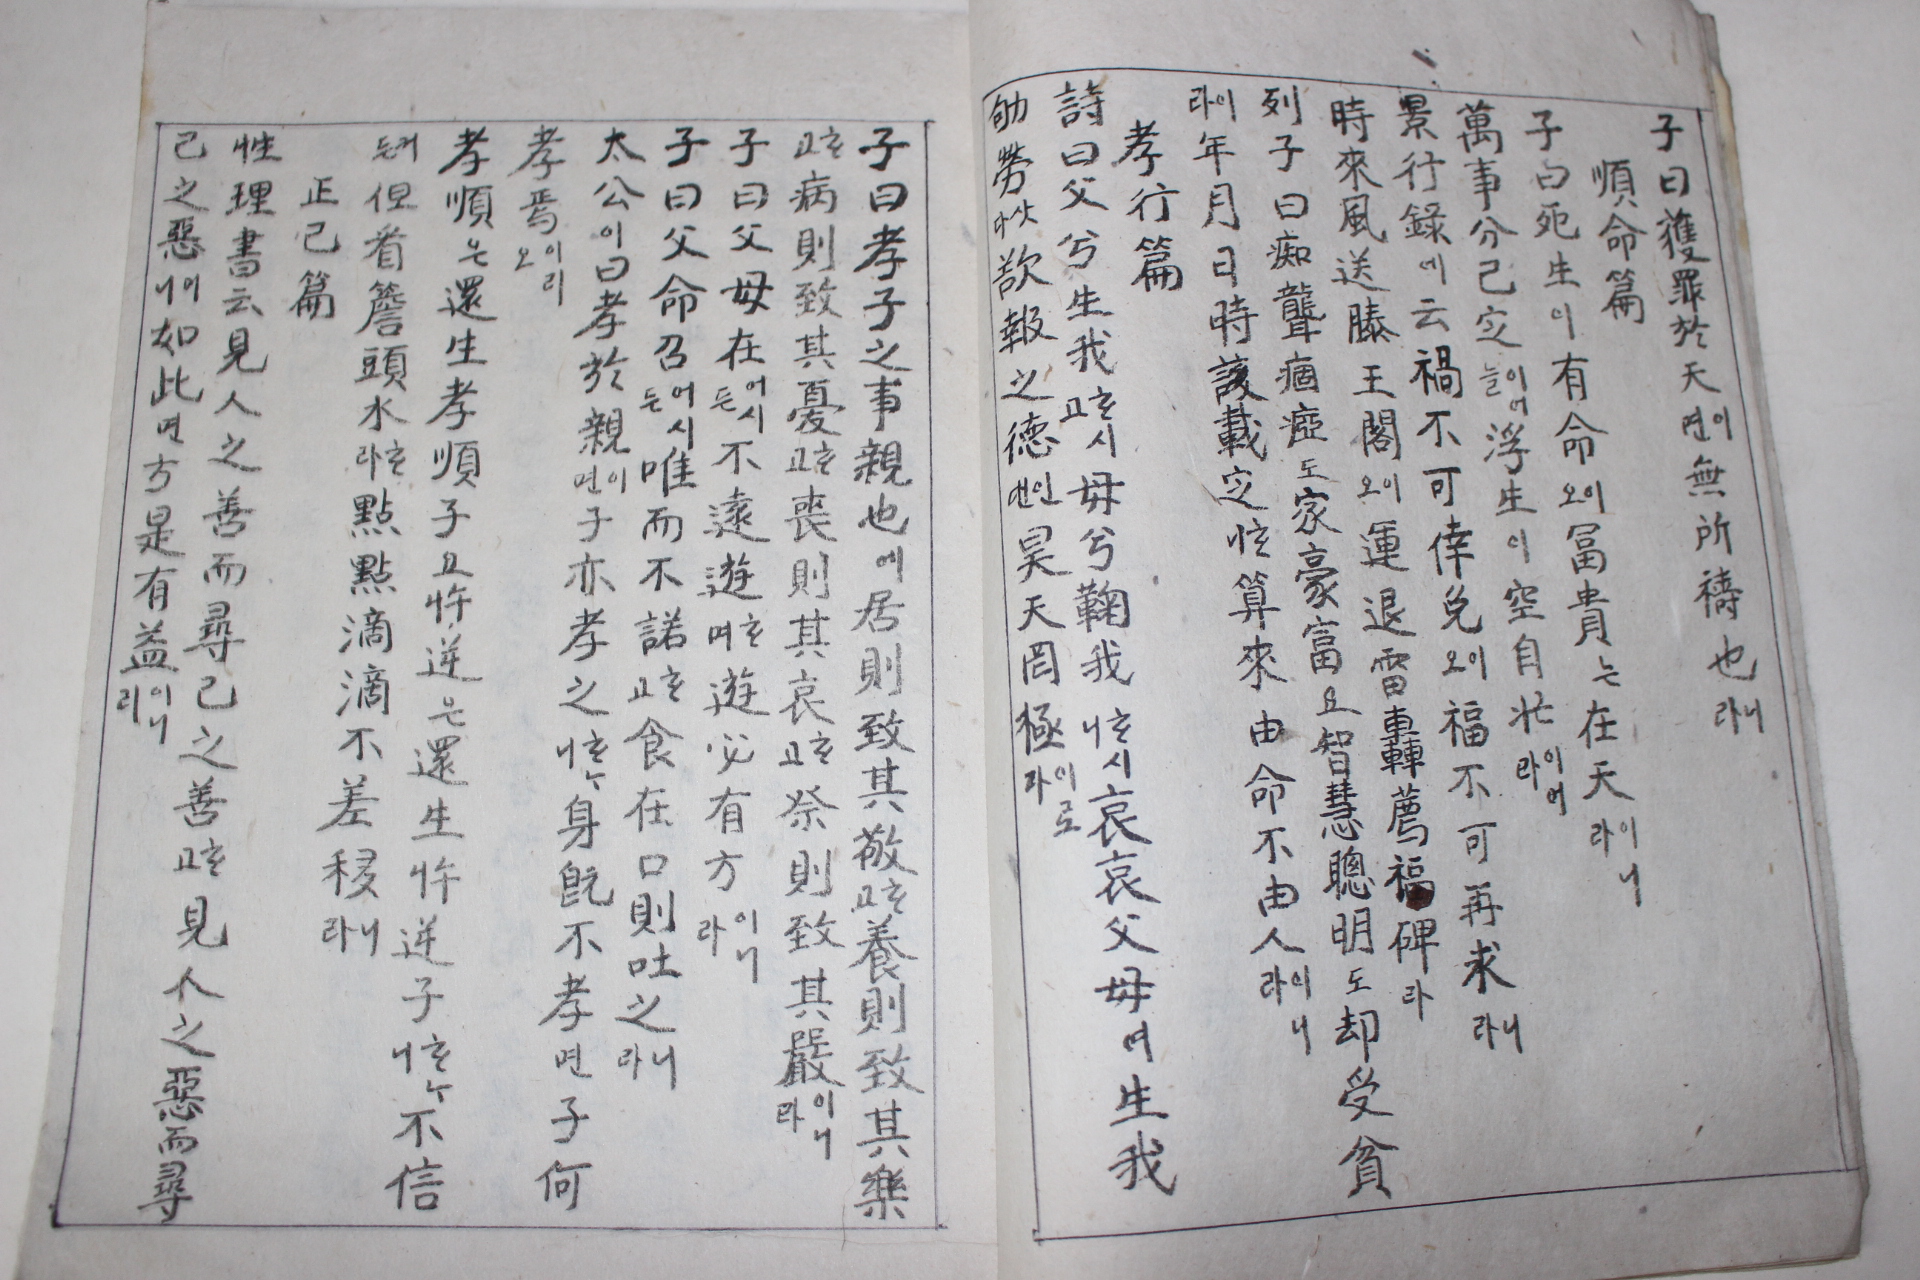 子曰獲罪於天이면無所禱也라니
順命篇
子曰死生이有命이오富貴는在天이라니
萬事分已定이어늘浮生이空自忙이라어
景行錄에云禍不可倖免이오福不可再求라니
時來風送滕王閣이오運退雷轟薦福碑라
列子曰痴聾痼瘂도家豪富요智慧聰明도却受貧
이라年月日時該載定하니算來由命不由人이라니
孝行篇
詩曰父兮生我하고시母兮鞠我하니시哀哀父母여生我
劬勞삿다欲報之德인면昊天罔極이로라
子曰孝子之事親也에居則致其敬하고養則致其樂
하고病則致其憂하고喪則其哀하고祭則致其嚴이니라
子曰父母在어시든不遠遊하며遊必有方이니라
子曰父命召어시든唯而不諾하고食在口則吐之니라
太公이曰孝於親이면子亦孝之하니身旣不孝면子何
孝焉이리오
孝順은還生孝順子요忤逆은還生忤逆子하니不信
커든但看簷頭水하라點點滴滴不差移니라
正己篇
性理書云見人之善而尋己之善하고見人之惡而尋
己之惡이니如此면方是有益이니라